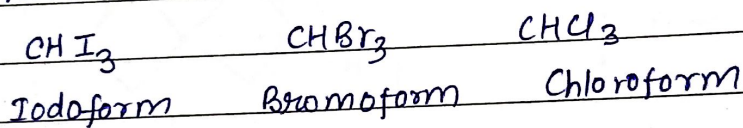 CHI₃ CHBr₃ CHCl₃
Iodoform Bromoform Chloroform